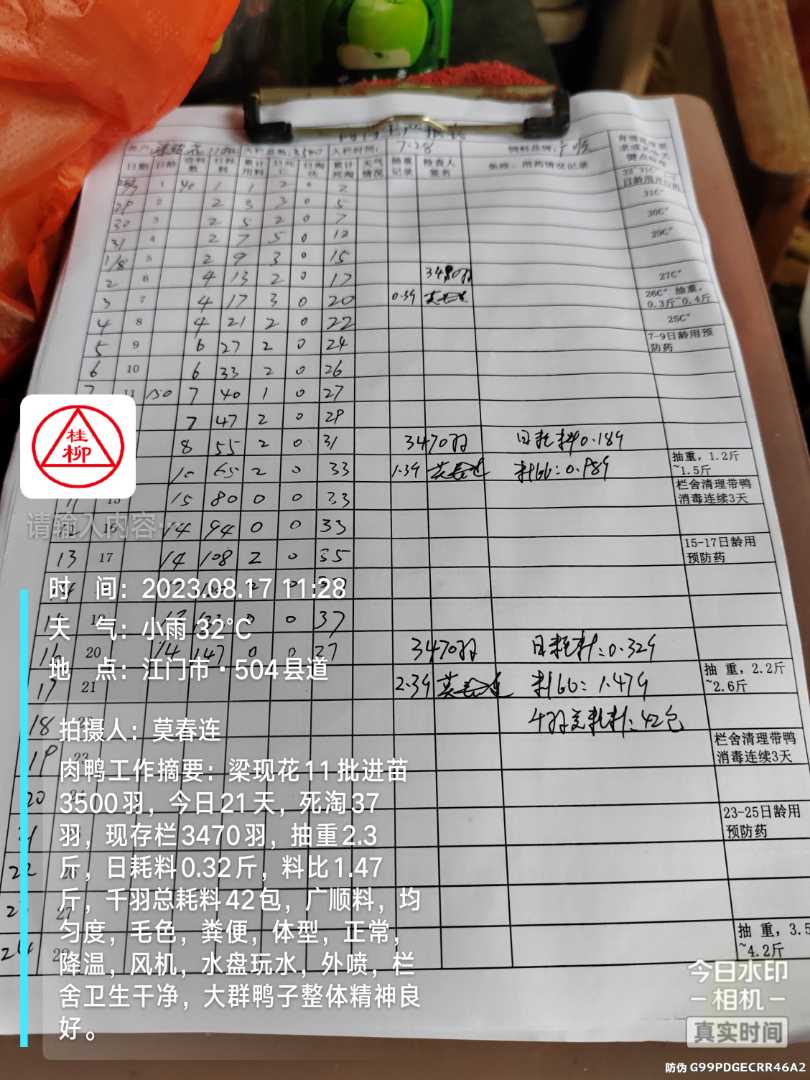 入栏时间: 7.28
饲料品牌:
日期 日龄 进料数 日耗料 累计用料 日死亡 日淘汰 累计死淘 天气情况 抽重记录 检查人签名 免疫、用药情况记录
1 40 1 1 2 0 2
29 2 2 3 3 0 5
30 3 2 5 2 0 7
31 4 2 7 5 0 12
1/8 5 2 9 3 0 15
2 6 4 13 2 0 17 3480羽 27C°
3 7 4 17 3 0 20 0.39 26C° 抽重,0.3斤~0.4斤
4 8 4 21 2 0 22 25C°
5 9 6 27 2 0 24 7-9日龄用预防药
6 10 6 33 2 0 26
7 11 150 7 40 1 0 27
7 47 2 0 29
8 55 2 0 31 3470羽 日耗料0.189
65 2 0 33 1.39 莫春连 抽重,1.2斤~1.5斤
15 80 0 0 33 栏舍清理带鸭消毒连续3天
14 94 0 0 33
13 17 14 108 2 0 35 15-17日龄用预防药
0 37
20 14 147 0 3470羽 日耗料:0.329
17 21 2.39 莫春连 料比:1.479 抽重,2.2斤~2.6斤
18 千羽总耗料:42包
19 栏舍清理带鸭消毒连续3天
20
23-25日龄用预防药
22
27
24 抽重,3.5~4.2斤
桂柳
请输入内容
时 间:2023.08.17 11:28
天 气:小雨 32℃
地 点:江门市·504县道
拍摄人:莫春连
肉鸭工作摘要:梁现花11批进苗
3500羽,今日21天,死淘37
羽,现存栏3470羽,抽重2.3
斤,日耗料0.32斤,料比1.47
斤,千羽总耗料42包,广顺料,均
匀度,毛色,粪便,体型,正常,
降温,风机,水盘玩水,外喷,栏
舍卫生干净,大群鸭子整体精神良
好。
今日水印
-相机-
真实时间
防伪 G99PDGECRR46A2